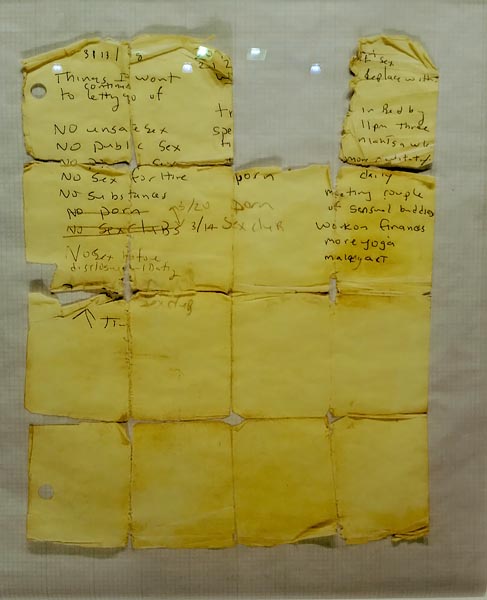 3/13/ 8
Things I want
continue
to letting go of
NO unsafe sex
NO public sex
NO sex for Hire
NO Substances
NO porn
NO Sex clubs 3/14 Sex club
3/20 porn
porn
NO sex before
disclosure
Sex
Replace with
in Bed by
11pm three
nights a wk
more meditate
daily
meeting couple
of sensual buddies
Work on finances
more yoga
make art